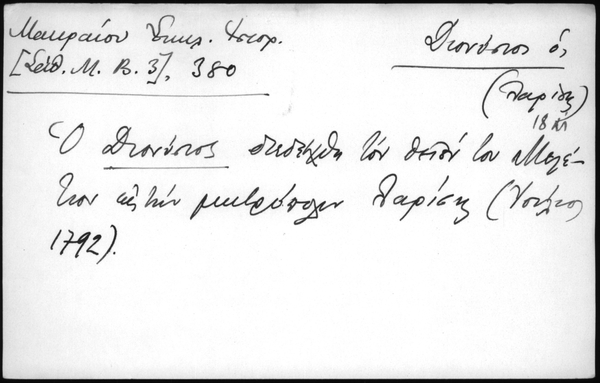 Μακραίου Ἐκκλ. Ἱστορ.
[Σάθ. Μ. Β. 3], 380
Διονύσιος ὁ,
(Λαρίσης)
18 αἰ
Ὁ Διονύσιος διεδέχθη τὸν θεῖόν του Μελέ-
τιον εἰς τὴν μητρόπολιν Λαρίσης (Ἰούλιος
1792).